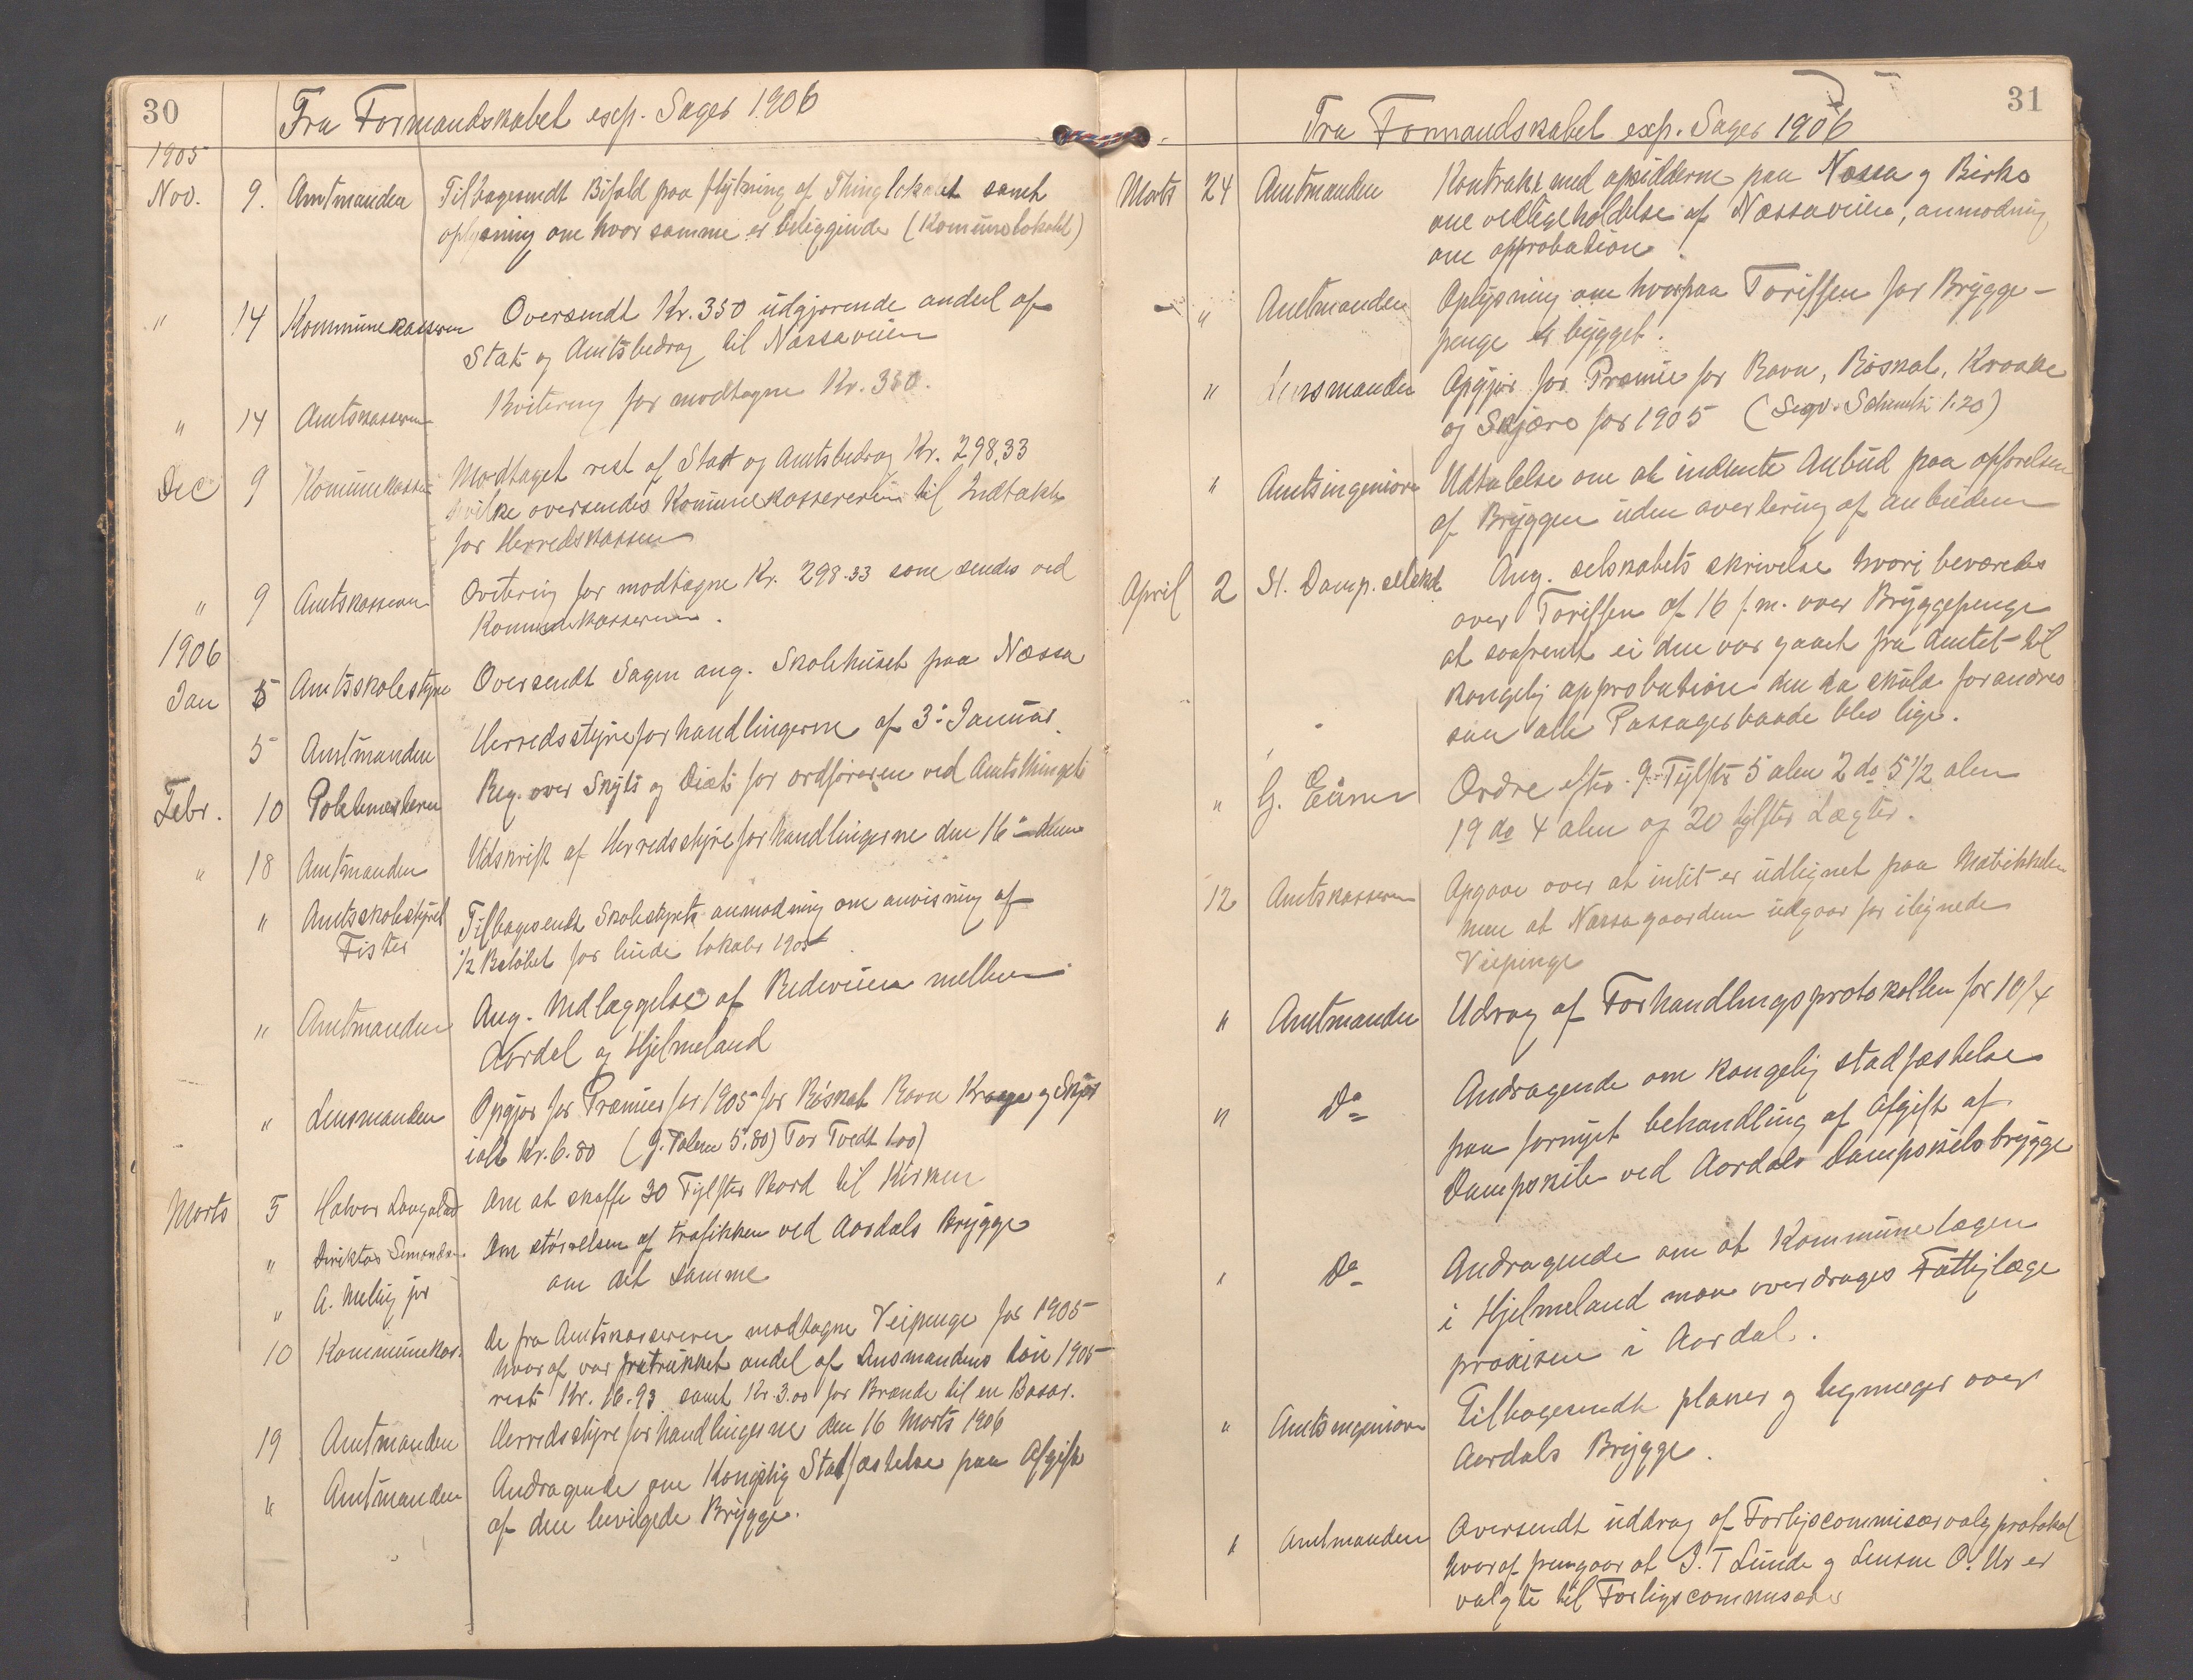 30
Fra Formandskabet exp. Sager 1906
1905
Nov. 9. Amtmanden Tilbagesendt Bifald paa flytning af Thinglokalet samt
oplysning om hvor samme er beliggende (Komunelokalet)
" 14 Kommunekasseren Oversendt Kr. 350 udgjørende andel af
Stats og Amtsbedrag til Næssaveien
" 14 Amtskasseren Kvitering for modtagne Kr. 350.
Dec 9 Komunekasse Modtaget rest af Stat og Amtsbedrag Kr. 298,33
hvilke oversendes Komunekassereren til Indtækt
for Herredskassen
" 9 Amtskasseren Qvitering for modtagne Kr. 298.33 som sendes ved
Kommunekasseren.
1906
Jan 5 Amtsskolestyre Oversendt Sagen ang. Skolehuset paa Næssa
5 Amtmanden Herredsstyreforhandlingerne af 3. Januar.
Febr. 10 Reg. over Skyts og Diæt for ordføreren ved Amtsthinget
" 18 Amtmanden Udskrift af Herredsstyreforhandlingerne den 16 dennes
" Amtsskolestyret Tilbagesendt Skolestyrets anmodning om anvisning af
Fister ½ Beløbet for leiede lokaler 1905
" Amtmanden Ang. Nedlæggelse af Rideveien mellem
Aardal og Hjelmeland
" Lensmanden Opgjør for Præmier for 1905 for Røskat Ravn Kraage og Skjør
ialt Kr. 6.80 (G. Valem 5.80) Tor Tvedt 1.00)
Marts 5 Halvor Langeland Om at skaffe 30 Tylfter Bord til Kirken
" Direktør Simonsen Om størrelsen af trafikken ved Aardals Brygge
" A. Melling jør om det samme
10 Kommunekas. De fra Amtskassereren modtagne Veipenge for 1905
hvoraf var fratrukket andel af Lensmandens løn 1905
rest Kr. 16.93 samt Kr. 3.00 for Brænde til en Basar.
19 Amtmanden Herredsstyreforhandlingerne den 16 Marts 1906
" Amtmanden Andragende om Kongelig Stadfæstelse paa Afgift
af den bevilgede Brygge.
31
Fra Formandskabet exp. Sager 1906
Marts 24 Amtmanden Kontrakt med opsidderne paa Næssa og Birke
om vedligeholdelse af Næssaveien, anmodning
om approbation.
" Amtmanden Oplysning om hvorpaa Tariffen for Brygge-
penge er bygget.
" Lensmanden Opgjør for Præmie for Ravn, Røskat, Kraake
og Skjære for 1905 (Sigv. 1.20)
" Amtsingeniøren Udtalelse om at indhente Anbud paa opførelsen
af Bryggen uden avertering af anbudene
April 2 St. Damp. selskab Ang. selskabets skrivelse hvori besværedes
over Tariffen af 16 f.m. over Bryggepenge
at saafremt ei den var gaaet fra Amtet til
kongelig approbation den da skulde forandres
saa alle Passagerbaade blev lige.
" G. Ordre efter 9 Tylfter 5 alen 2 do 5 1/2 alen
19 do 4 alen og 20 tylfter Lægter.
12 Amtskasseren Opgave over at intet er udlignet paa Matrikkelen
men at Næssagaardene udgaar for ilignede
Veipenge
" Amtmanden Udrag af Forhandlingsprotokollen for 10/4
" Do Andragende om kongelig stadfæstelse
paa fornyet behandling af Afgift af
Dampskibe ved Aardals Dampskibsbrygge
" Do Andragende om at Kommunelægen
i Hjelmeland maa overdrages Fattiglæge
praxisen i Aardal.
" Amtsingeniøren Tilbagesendt planer og tegninger over
Aardals Brygge.
" Amtmanden Oversendt uddrag af Forligscommisærvalg protokol
hvoraf fremgaar at J. T Lunde og Lensm O. Ur er
valgte til Forligscommisærer